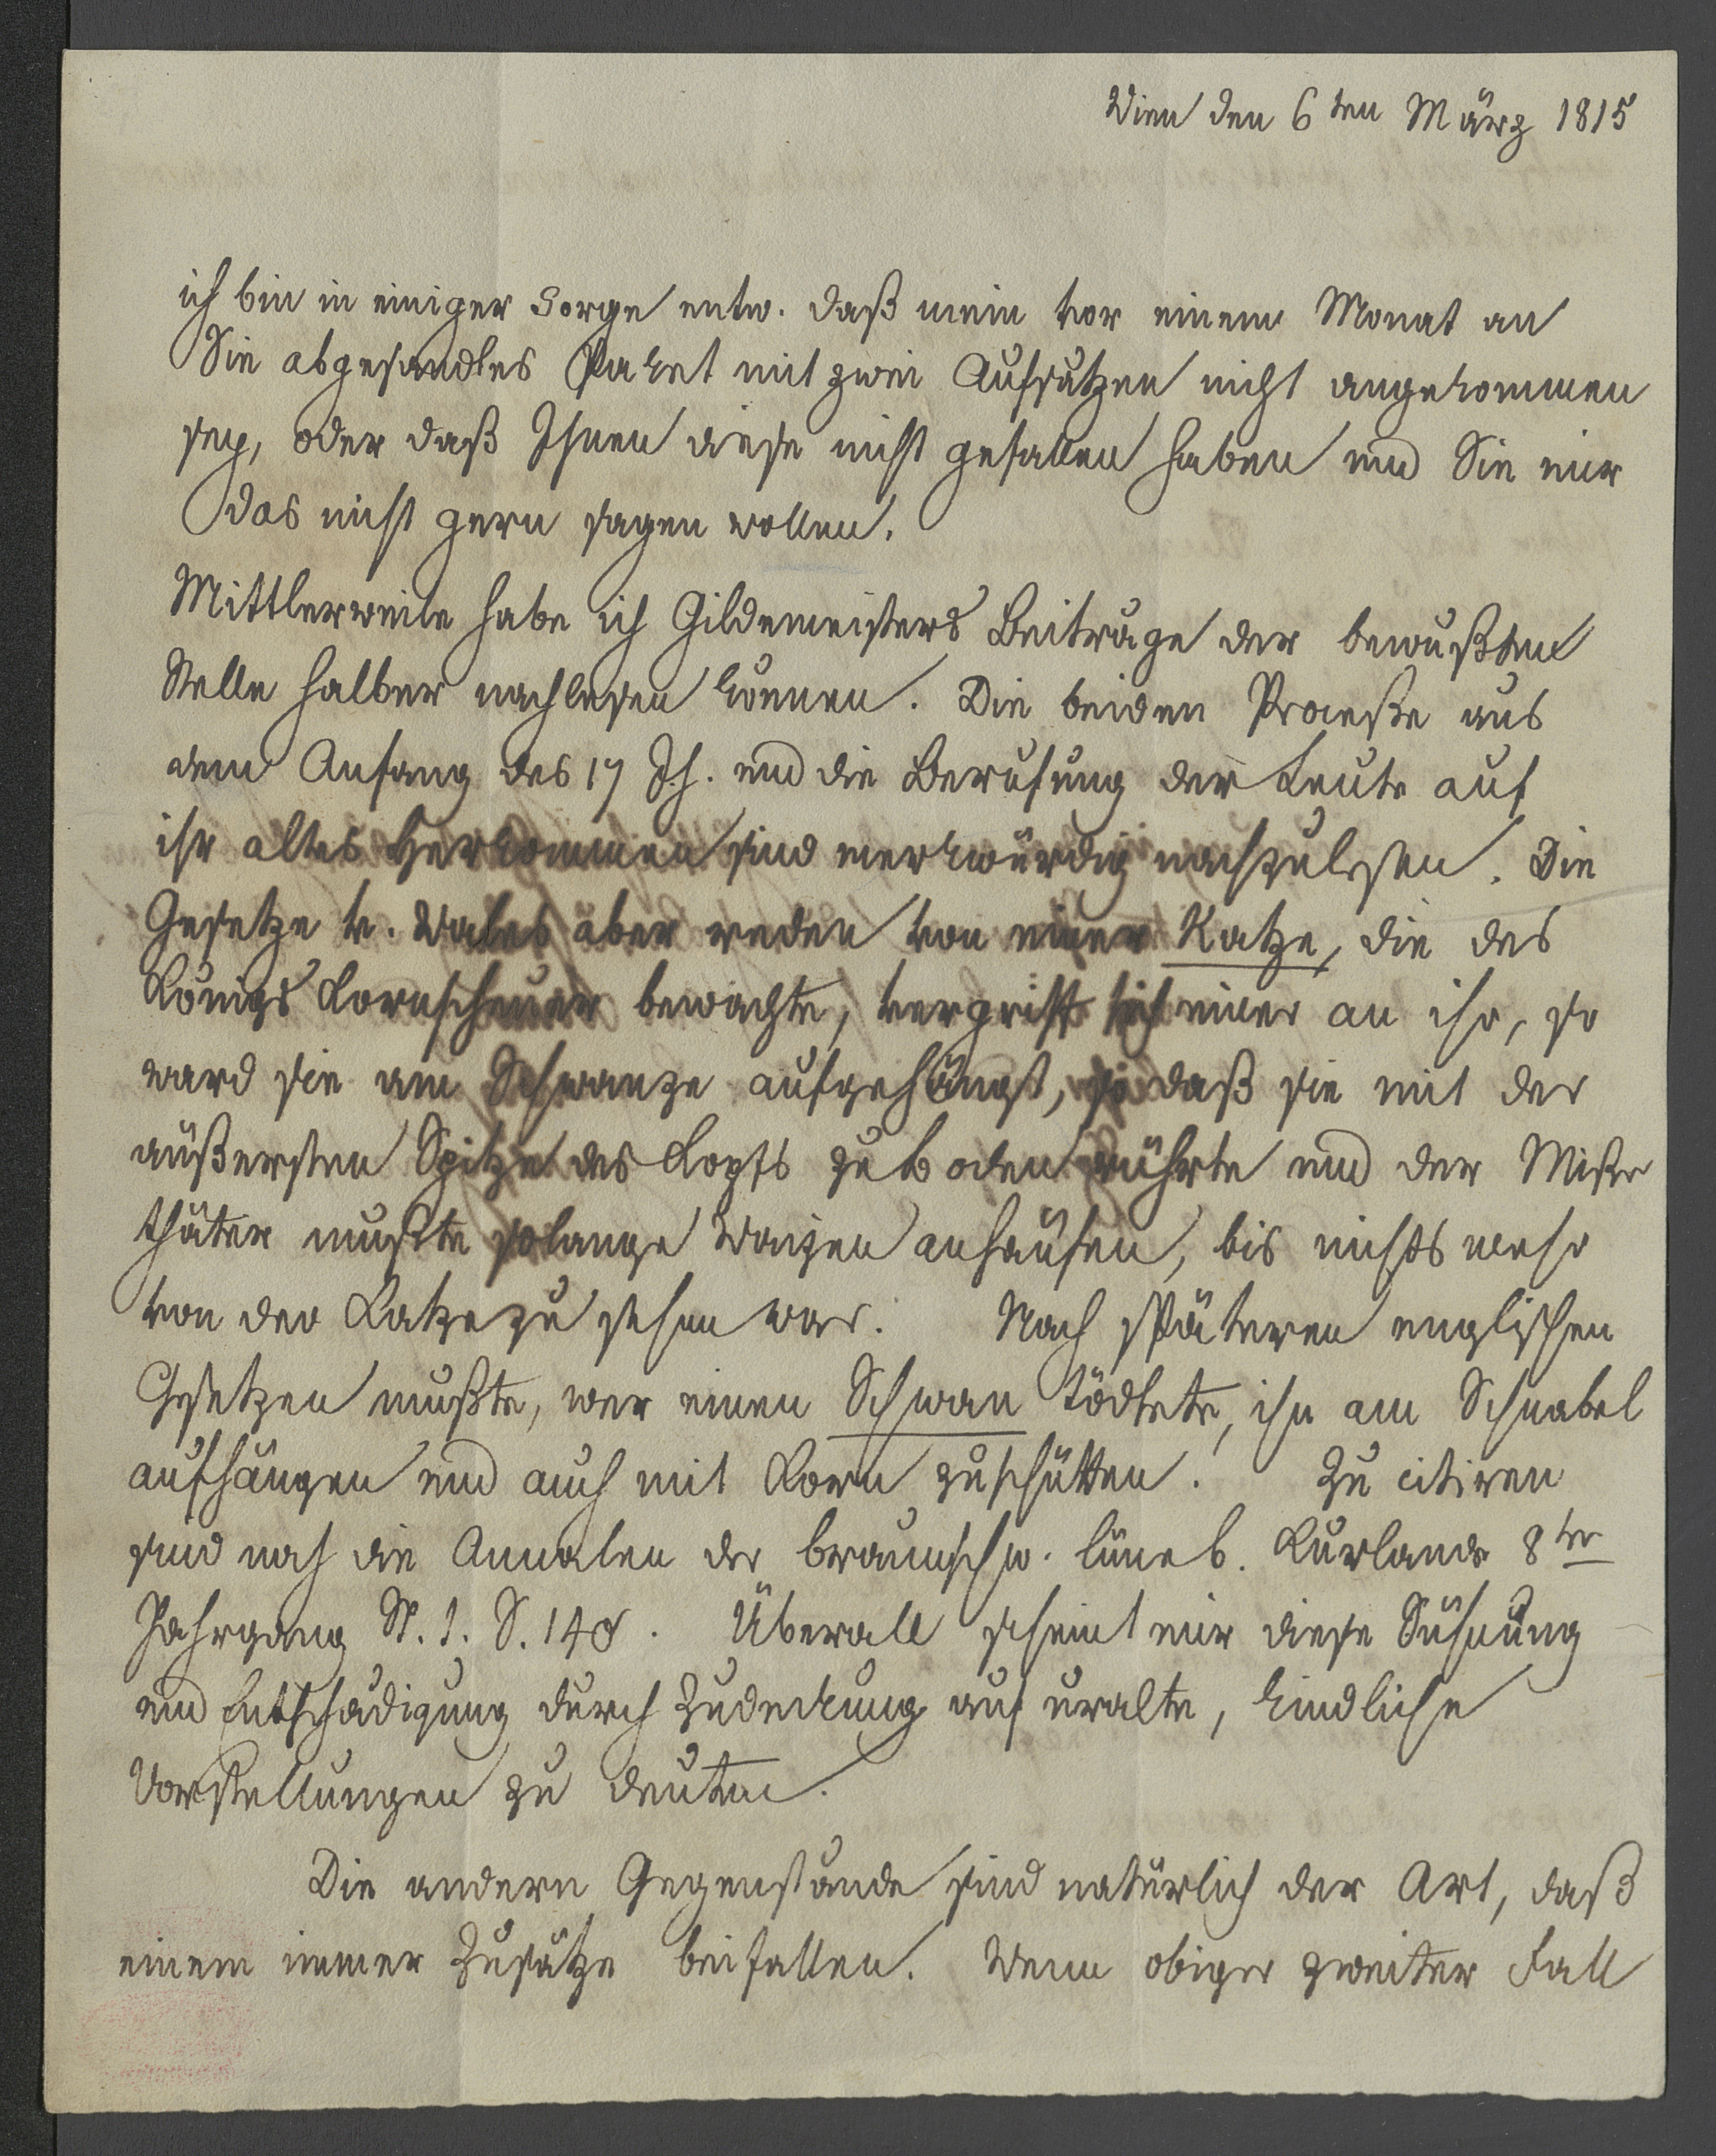 Wien den 6ten März 1815
ich bin in einiger Sorge entw. daß mein vor einem Monat an
Sie abgesandtes Paket mit zwei Aufsätzen nicht angekommen
sey, oder daß Ihnen diese nicht gefallen haben und Sie mir
das nicht gern sagen wollen.
Mittlerweile habe ich Gildemeisters Beiträge der bewußten
Stelle halber nachlesen können. Die beiden Proceße aus
dem Anfang des 17 Jh. und die Berufung der Leute auf
ihr altes Herkommen sind merkwürdig nachzulesen. Die
Gesetze v. Wales aber reden von einer Katze, die des
Königs Kornscheuer bewachte, vergriff sich einer an ihr, so
ward sie am Schwanze aufgehängt, so daß sie mit der
äußersten Spitze des Kopfs zu boden rührte und der Miße
thäter mußte solange Waizen anhäufen, bis nichts mehr
von der Katze zu sehen war. Nach späteren englischen
Gesetzen mußte, wer einen Schwan tödtete, ihn am Schnabel
aufhängen und auch mit Korn zuschütten. Zu citiren
sind noch die Annalen der braunschw. lüneb. Kurlande 8ter
Jahrgang St. 1. S. 140. Überall scheint mir diese Sühnung
und Entschädigung durch Zudeckung auf uralte, kindliche
Vorstellungen zu deuten.
Die andern Gegenstände sind natürlich der Art, daß
einem immer Zusätze beifallen. Wenn obiger zweiter Fall